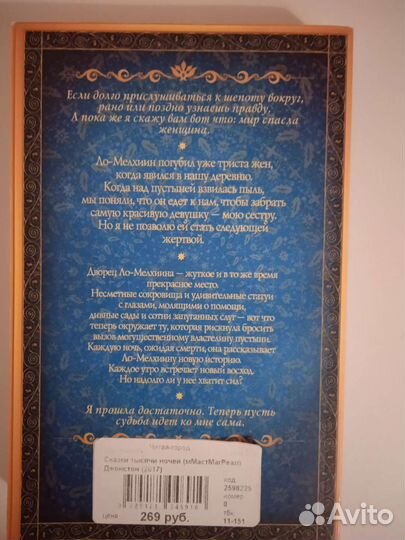 Если долго прислушиваться к шепоту вокруг,
рано или поздно узнаешь правду.
А пока же я скажу вам вот что: мир спасла
женщина.
Ло-Мелхиин погубил уже триста жен,
когда явился в нашу деревню.
Когда над пустыней взвилась пыль,
мы поняли, что он едет к нам, чтобы забрать
самую красивую девушку — мою сестру.
Но я не позволю ей стать следующей
жертвой.
Дворец Ло-Мелхиина — жуткое и в то же время
прекрасное место.
Несметные сокровища и удивительные статуи
с глазами, молящими о помощи,
дивные сады и сотни запуганных слуг — вот что
теперь окружает ту, которая рискнула бросить
вызов могущественному властелину пустыни.
Каждую ночь, ожидая смерти, она рассказывает
Ло-Мелхиину новую историю.
Каждое утро встречает новый восход.
Но надолго ли у нее хватит сил?
Я прошла достаточно. Теперь пусть
судьба идет ко мне сама.
Читай-город
Сказки тысячи ночей (мМастМагРеал)
Джонстон (2017)
код
2598225
номер
0
тбк
11-151
цена
269 руб.
Avito